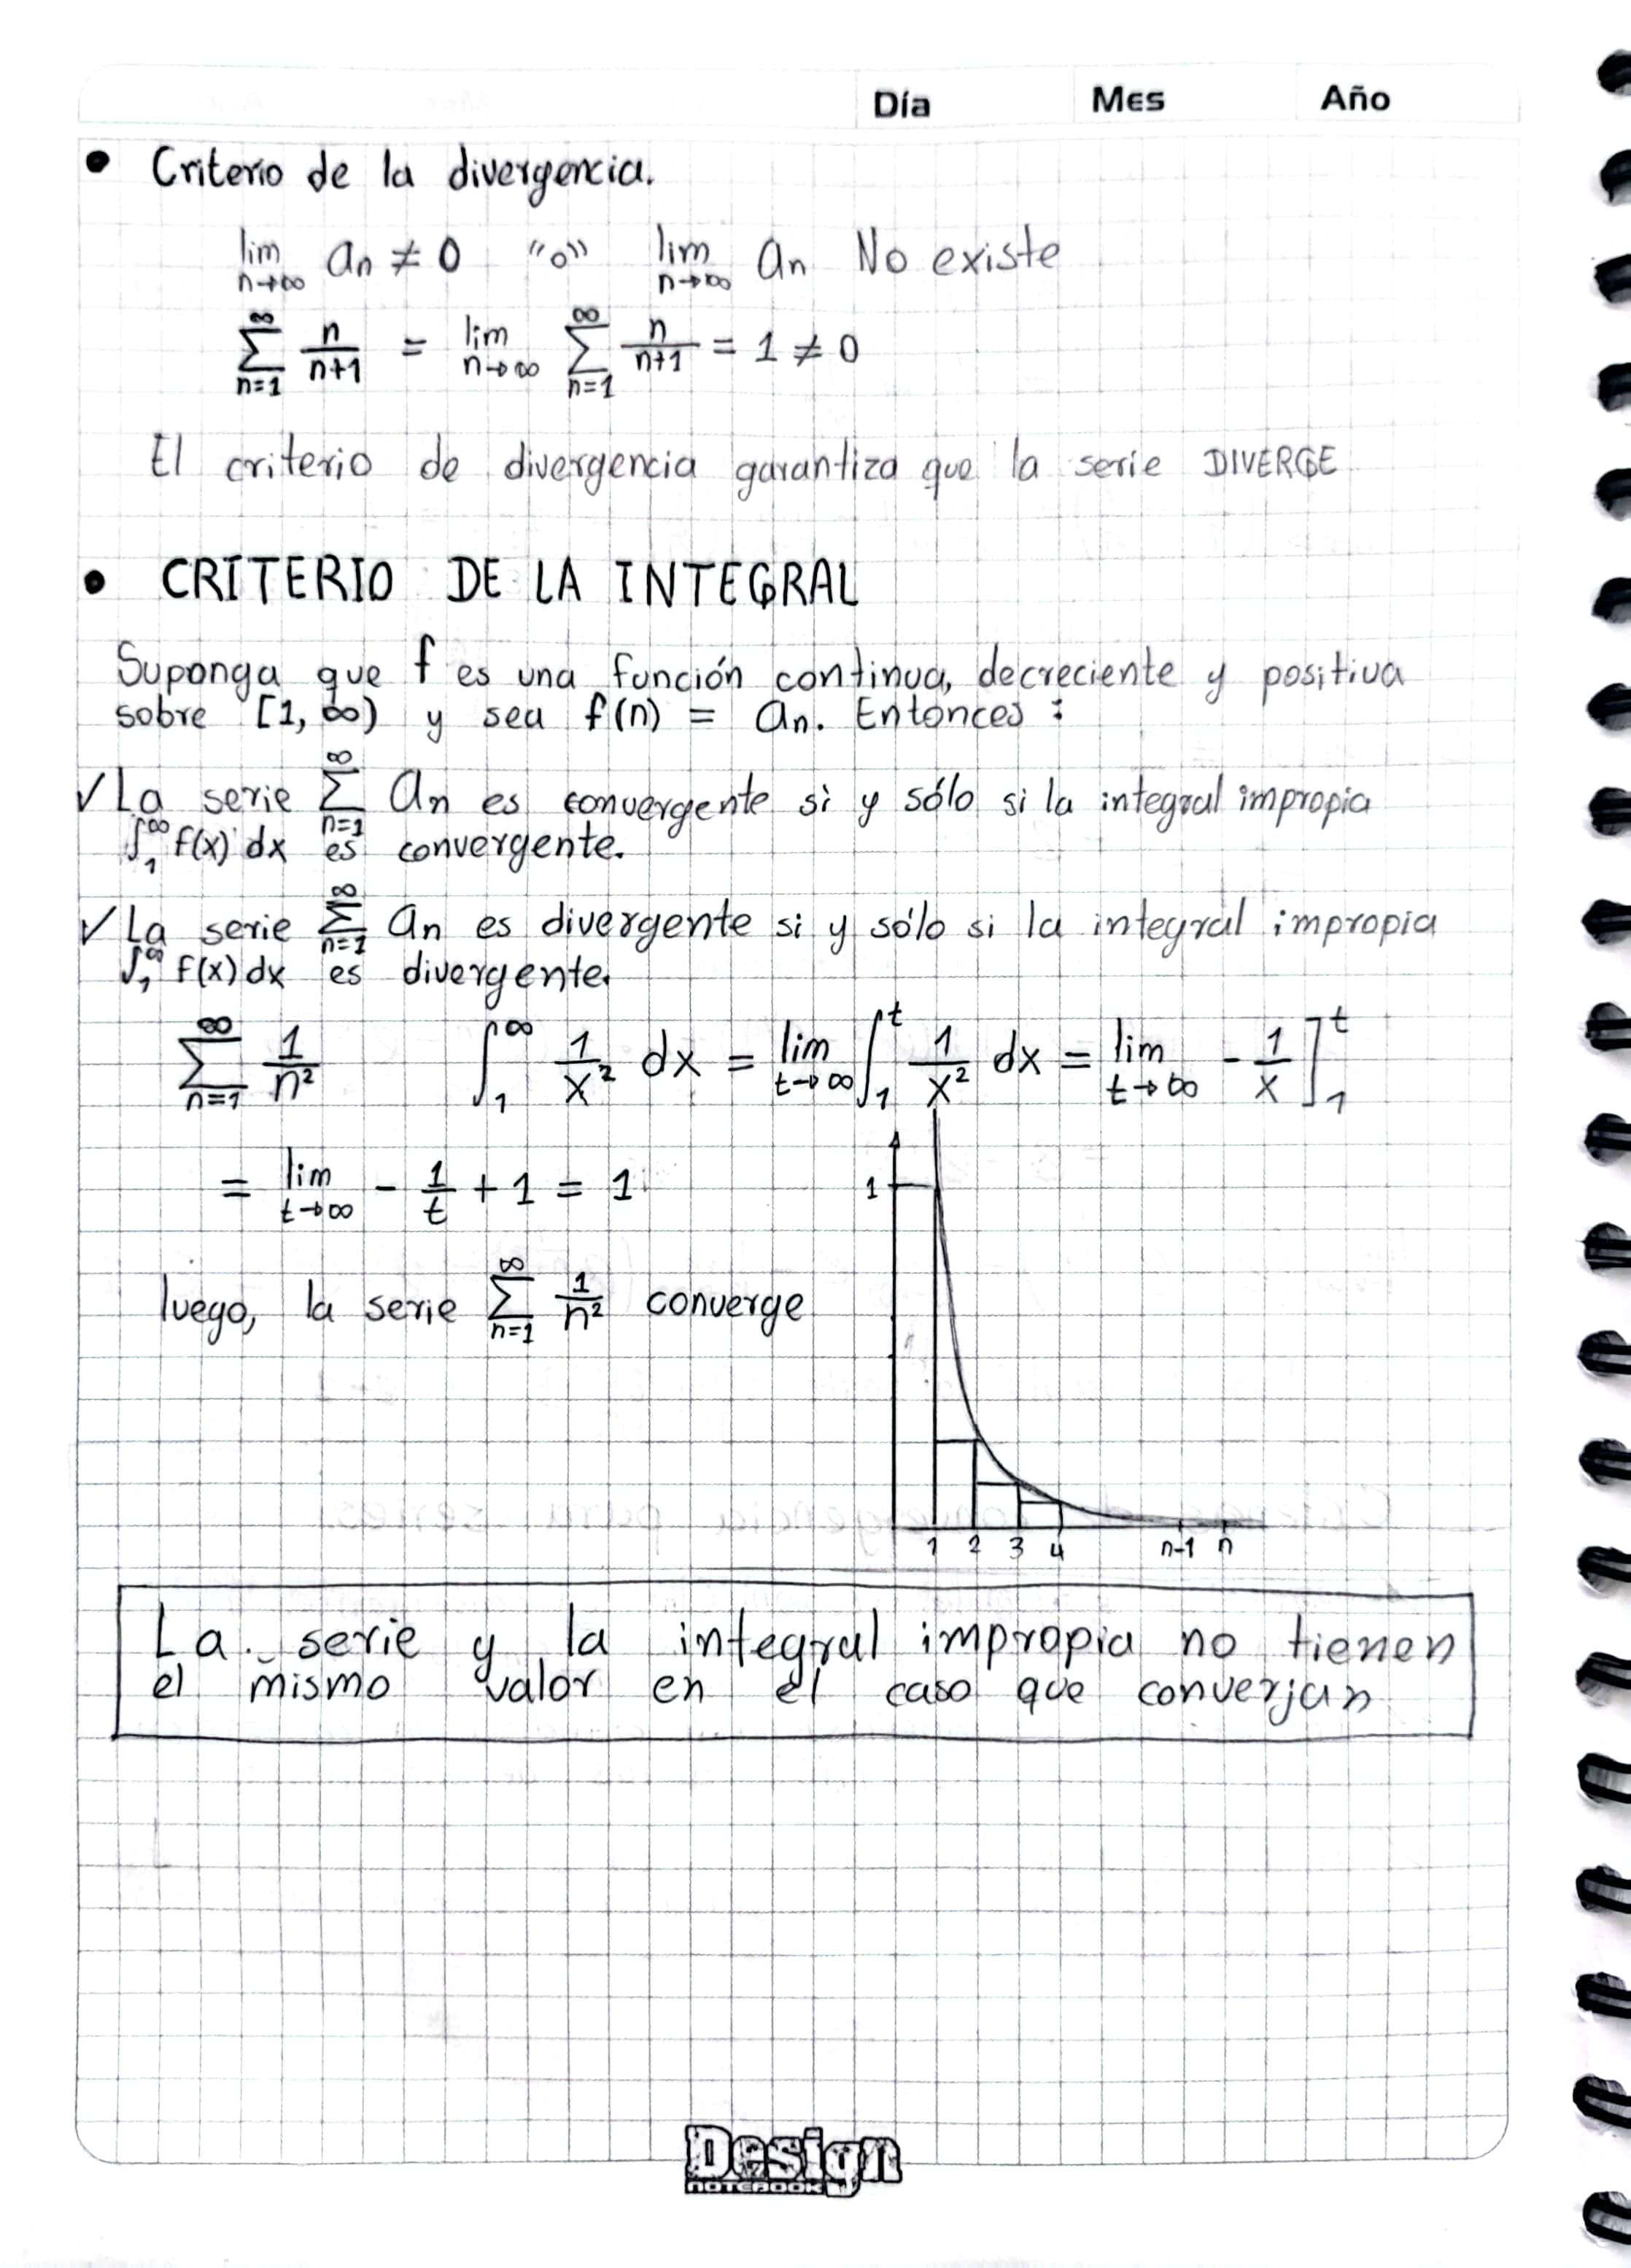 Día Mes Año
• Criterio de la divergencia.
lim n→∞ an ≠ 0 "o" lim n→∞ an No existe
∞ ∑ n=1 n/n+1 = lim n→∞ ∞ ∑ n=1 n/n+1 = 1 ≠ 0
El criterio de divergencia garantiza que la serie DIVERGE
• CRITERIO DE LA INTEGRAL
Suponga que f es una función continua, decreciente y positiva
sobre [1, ∞) y sea f(n) = an. Entonces :
✓ La serie ∞ ∑ n=1 an es convergente si y sólo si la integral impropia
∫₁^∞ f(x) dx es convergente.
✓ La serie ∞ ∑ n=1 an es divergente si y sólo si la integral impropia
∫₁^∞ f(x) dx es divergente.
∞ ∑ n=1 1/n² ∫₁^∞ 1/x² dx = lim t→∞ ∫₁^t 1/x² dx = lim t→∞ - 1/x ]₁^t
= lim t→∞ - 1/t + 1 = 1
1
luego, la serie ∞ ∑ n=1 1/n² converge
1 2 3 4 n-1 n
La serie y la integral impropia no tienen
el mismo valor en el caso que converjan
Design
NOTEBOOK